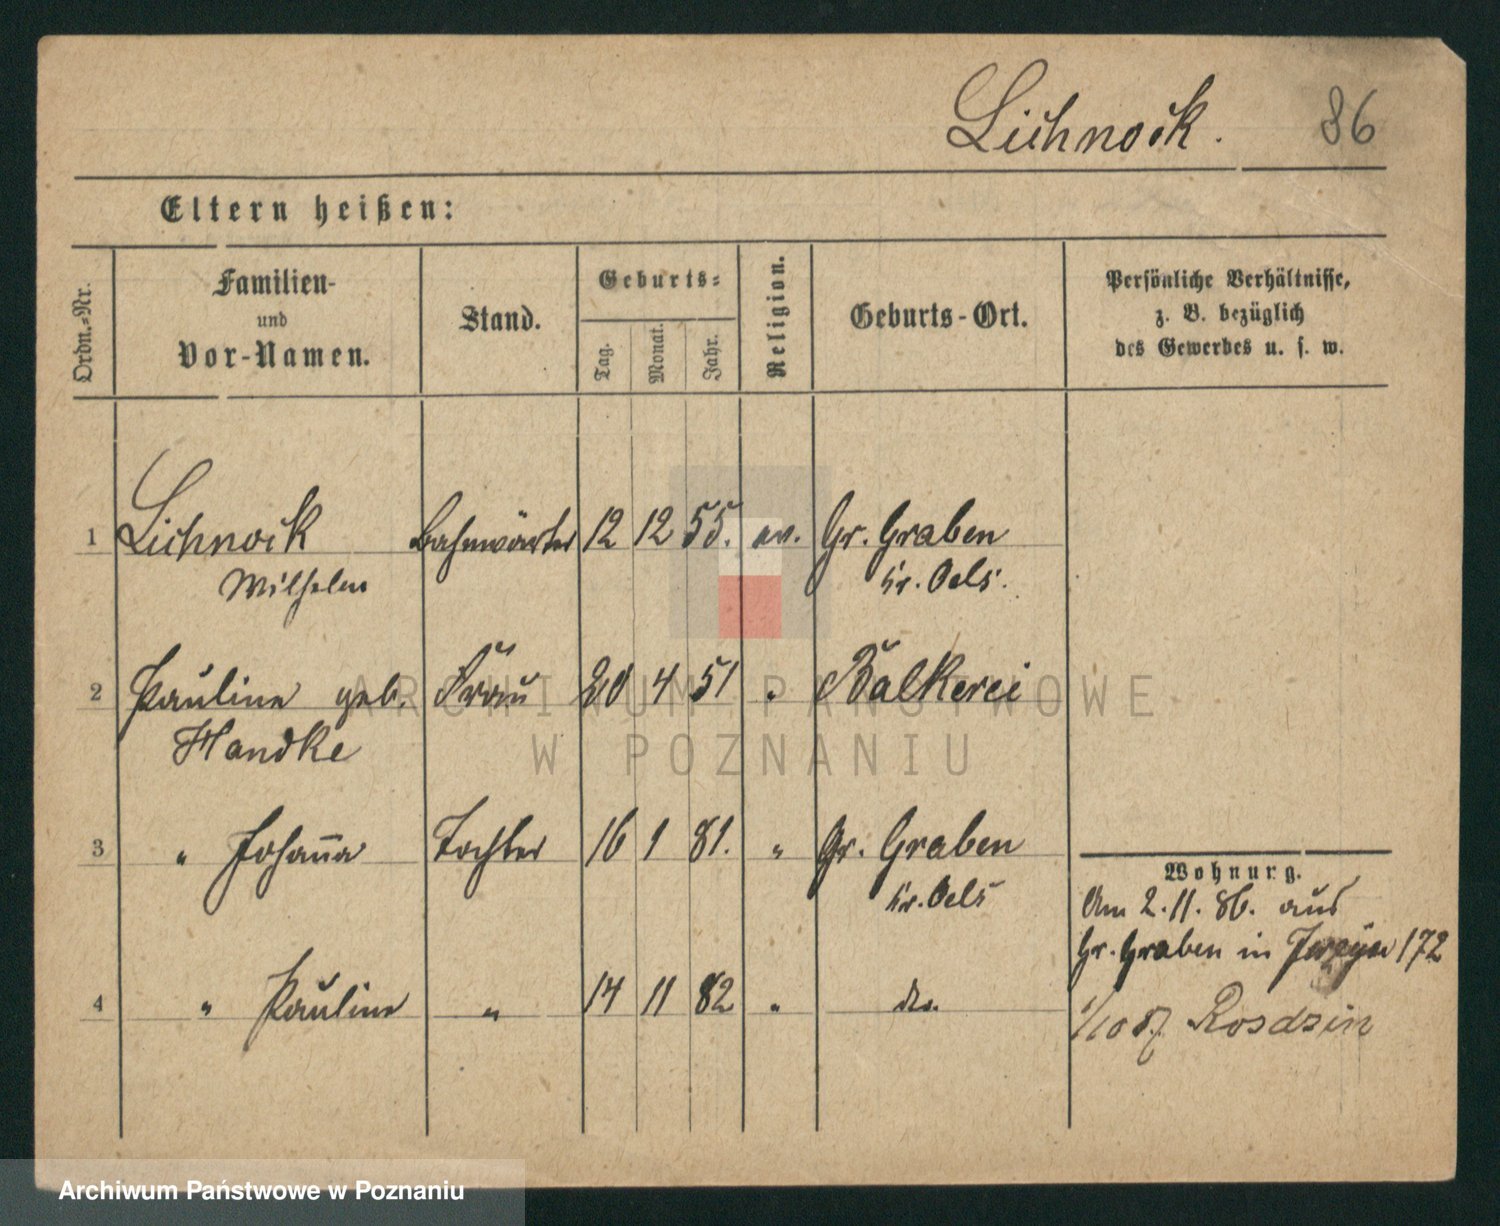 Lichnock. 86
Eltern heißen:
Ordn.-Nr.
Familien-
und
Vor-Namen.
Stand.
Geburts-
Tag.
Monat.
Jahr.
Religion.
Geburts-Ort.
Persönliche Verhältnisse,
z. B. bezüglich
des Gewerbes u. s. w.
1 Lichnock Bahnwärter 12 12 55. ev. Gr. Graben
Wilhelm Kr. Oels.
2 Pauline geb. Frau 20 4 51 " Balkerei
Handke
3 " Johanna Tochter 16 1 81. " Gr. Graben
Kr. Oels
4 " Pauline " 14 11 82 " do.
Wohnung.
Am 2.11.86. aus
Gr. Graben in 172
1/10 87 Rosdzin
ARCHIWUM PAŃSTWOWE
W POZNANIU
Archiwum Państwowe w Poznaniu